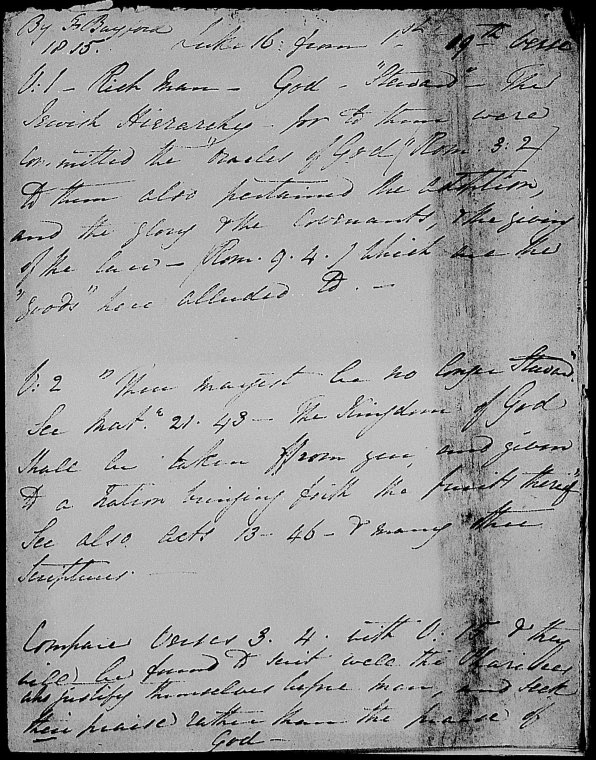 By F Bayford
1815. Luke 16. from 1st 19th verse
V: 1 - Rich Man - God - "Steward" - The
Jewish Hierarchy - for to them were
committed the "oracles of God (Rom. 3. 2)
to them also pertained the adoption,
and the glory & the Covenants, & the giving
of the law - (Rom. 9. 4.) Which are the
"goods" here alluded to. -
V: 2 "Thou mayest be no longer Steward".
See Mat. 21. 43 - The Kingdom of God
shall be taken from you and given
to a Nation bringing forth the fruits thereof"
See also Acts 13 - 46 - & many other
Scriptures.
Compare verses 3. 4. with V: 15 & they
will be found to suit well the Pharisees
who justify themselves before man, and seek
their praise rather than the praise of
God -